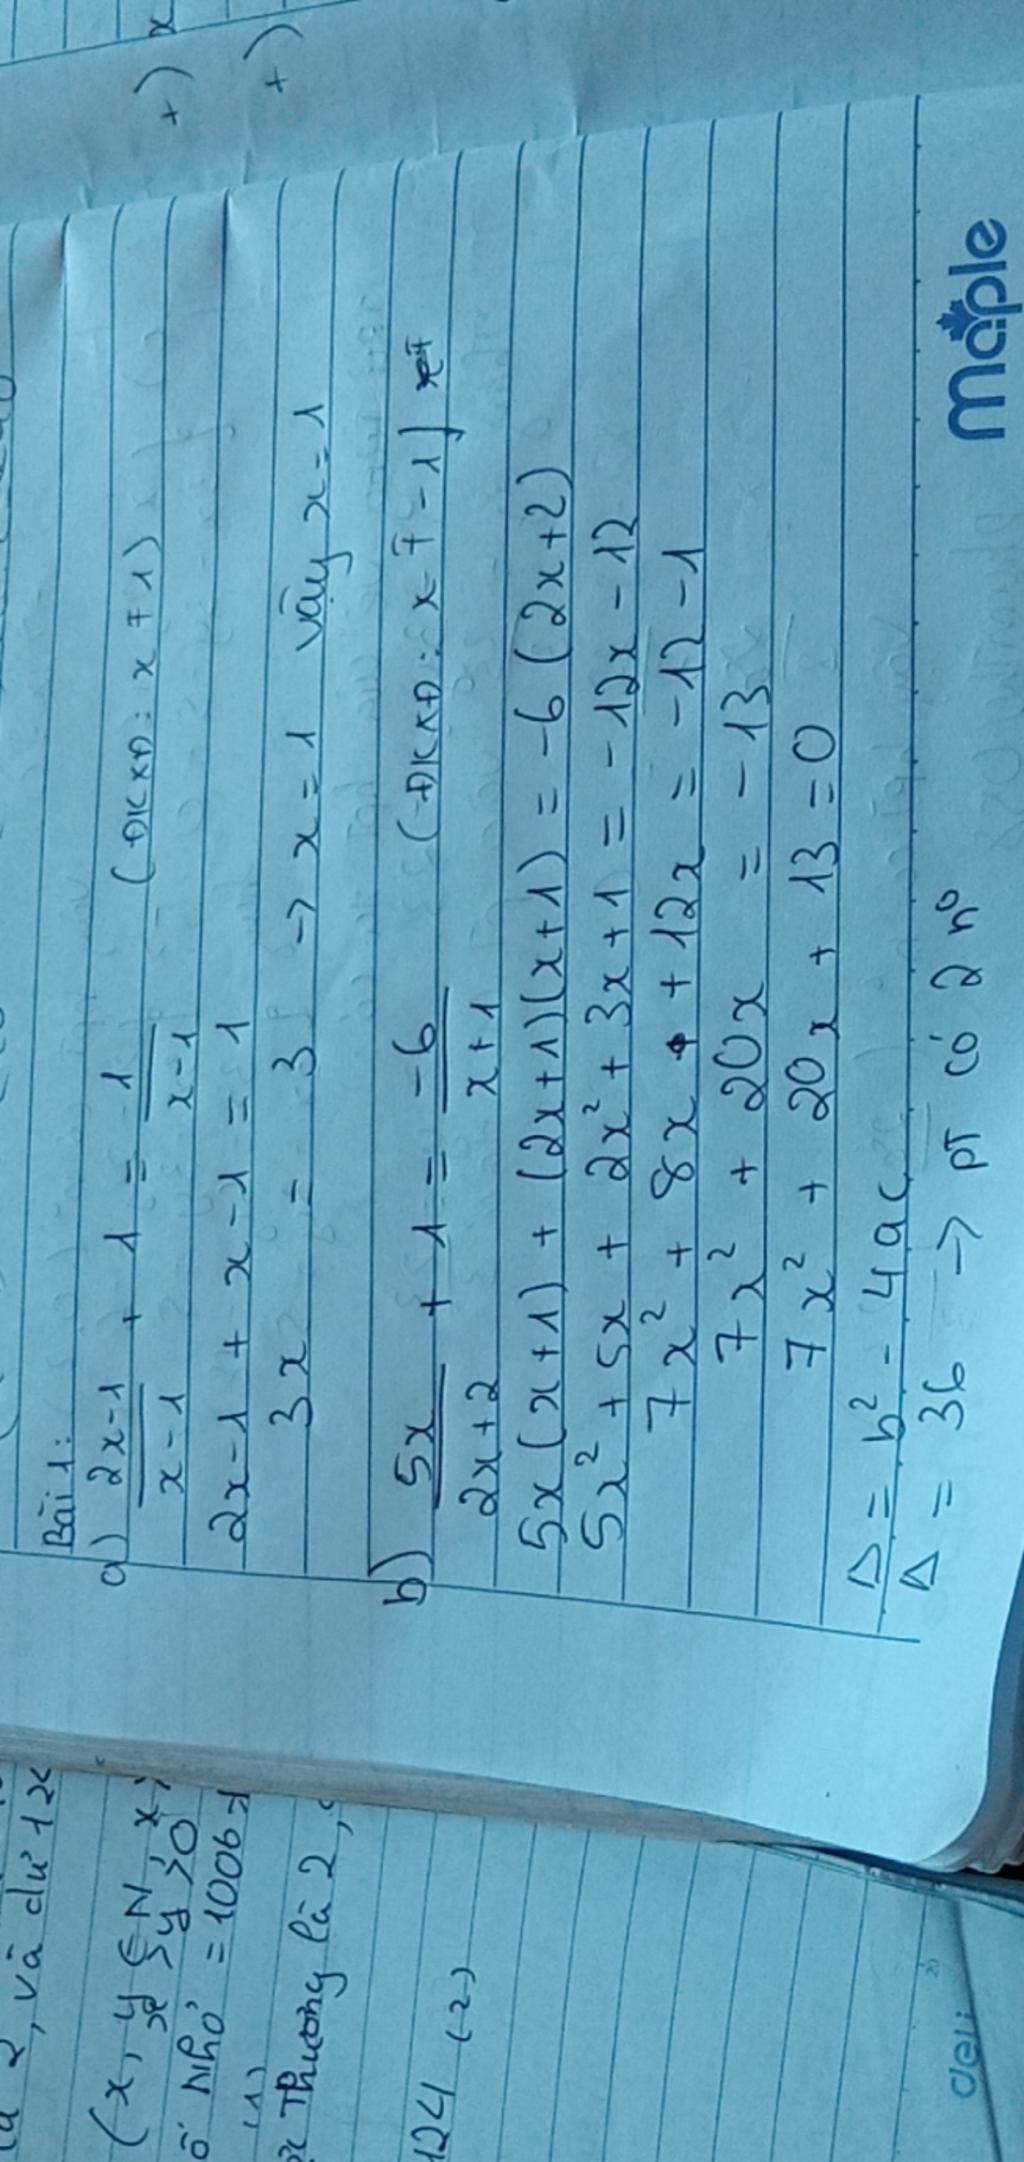 Bài 1:
a) 2x-1/x-1 + 1 = 1/x-1 (ĐKXĐ: x ≠ 1)
2x-1 + x-1 = 1
3x = 3 → x = 1 vậy x = 1
b) 5x/2x+2 + 1 = -6/x+1 (ĐKXĐ: x ≠ -1)
5x(x+1) + (2x+1)(x+1) = -6(2x+2)
5x² + 5x + 2x² + 3x + 1 = -12x - 12
7x² + 8x + 12x = -12 - 1
7x² + 20x = -13
7x² + 20x + 13 = 0
Δ = b² - 4ac
Δ = 36 → pT có 2 n⁰
maple
+) x
+)
2, và dư 12
(x, y ∈ N, x
x > y > 0
ố nhỏ = 1006
(1)
Thương là 2,
124 (2)
deli